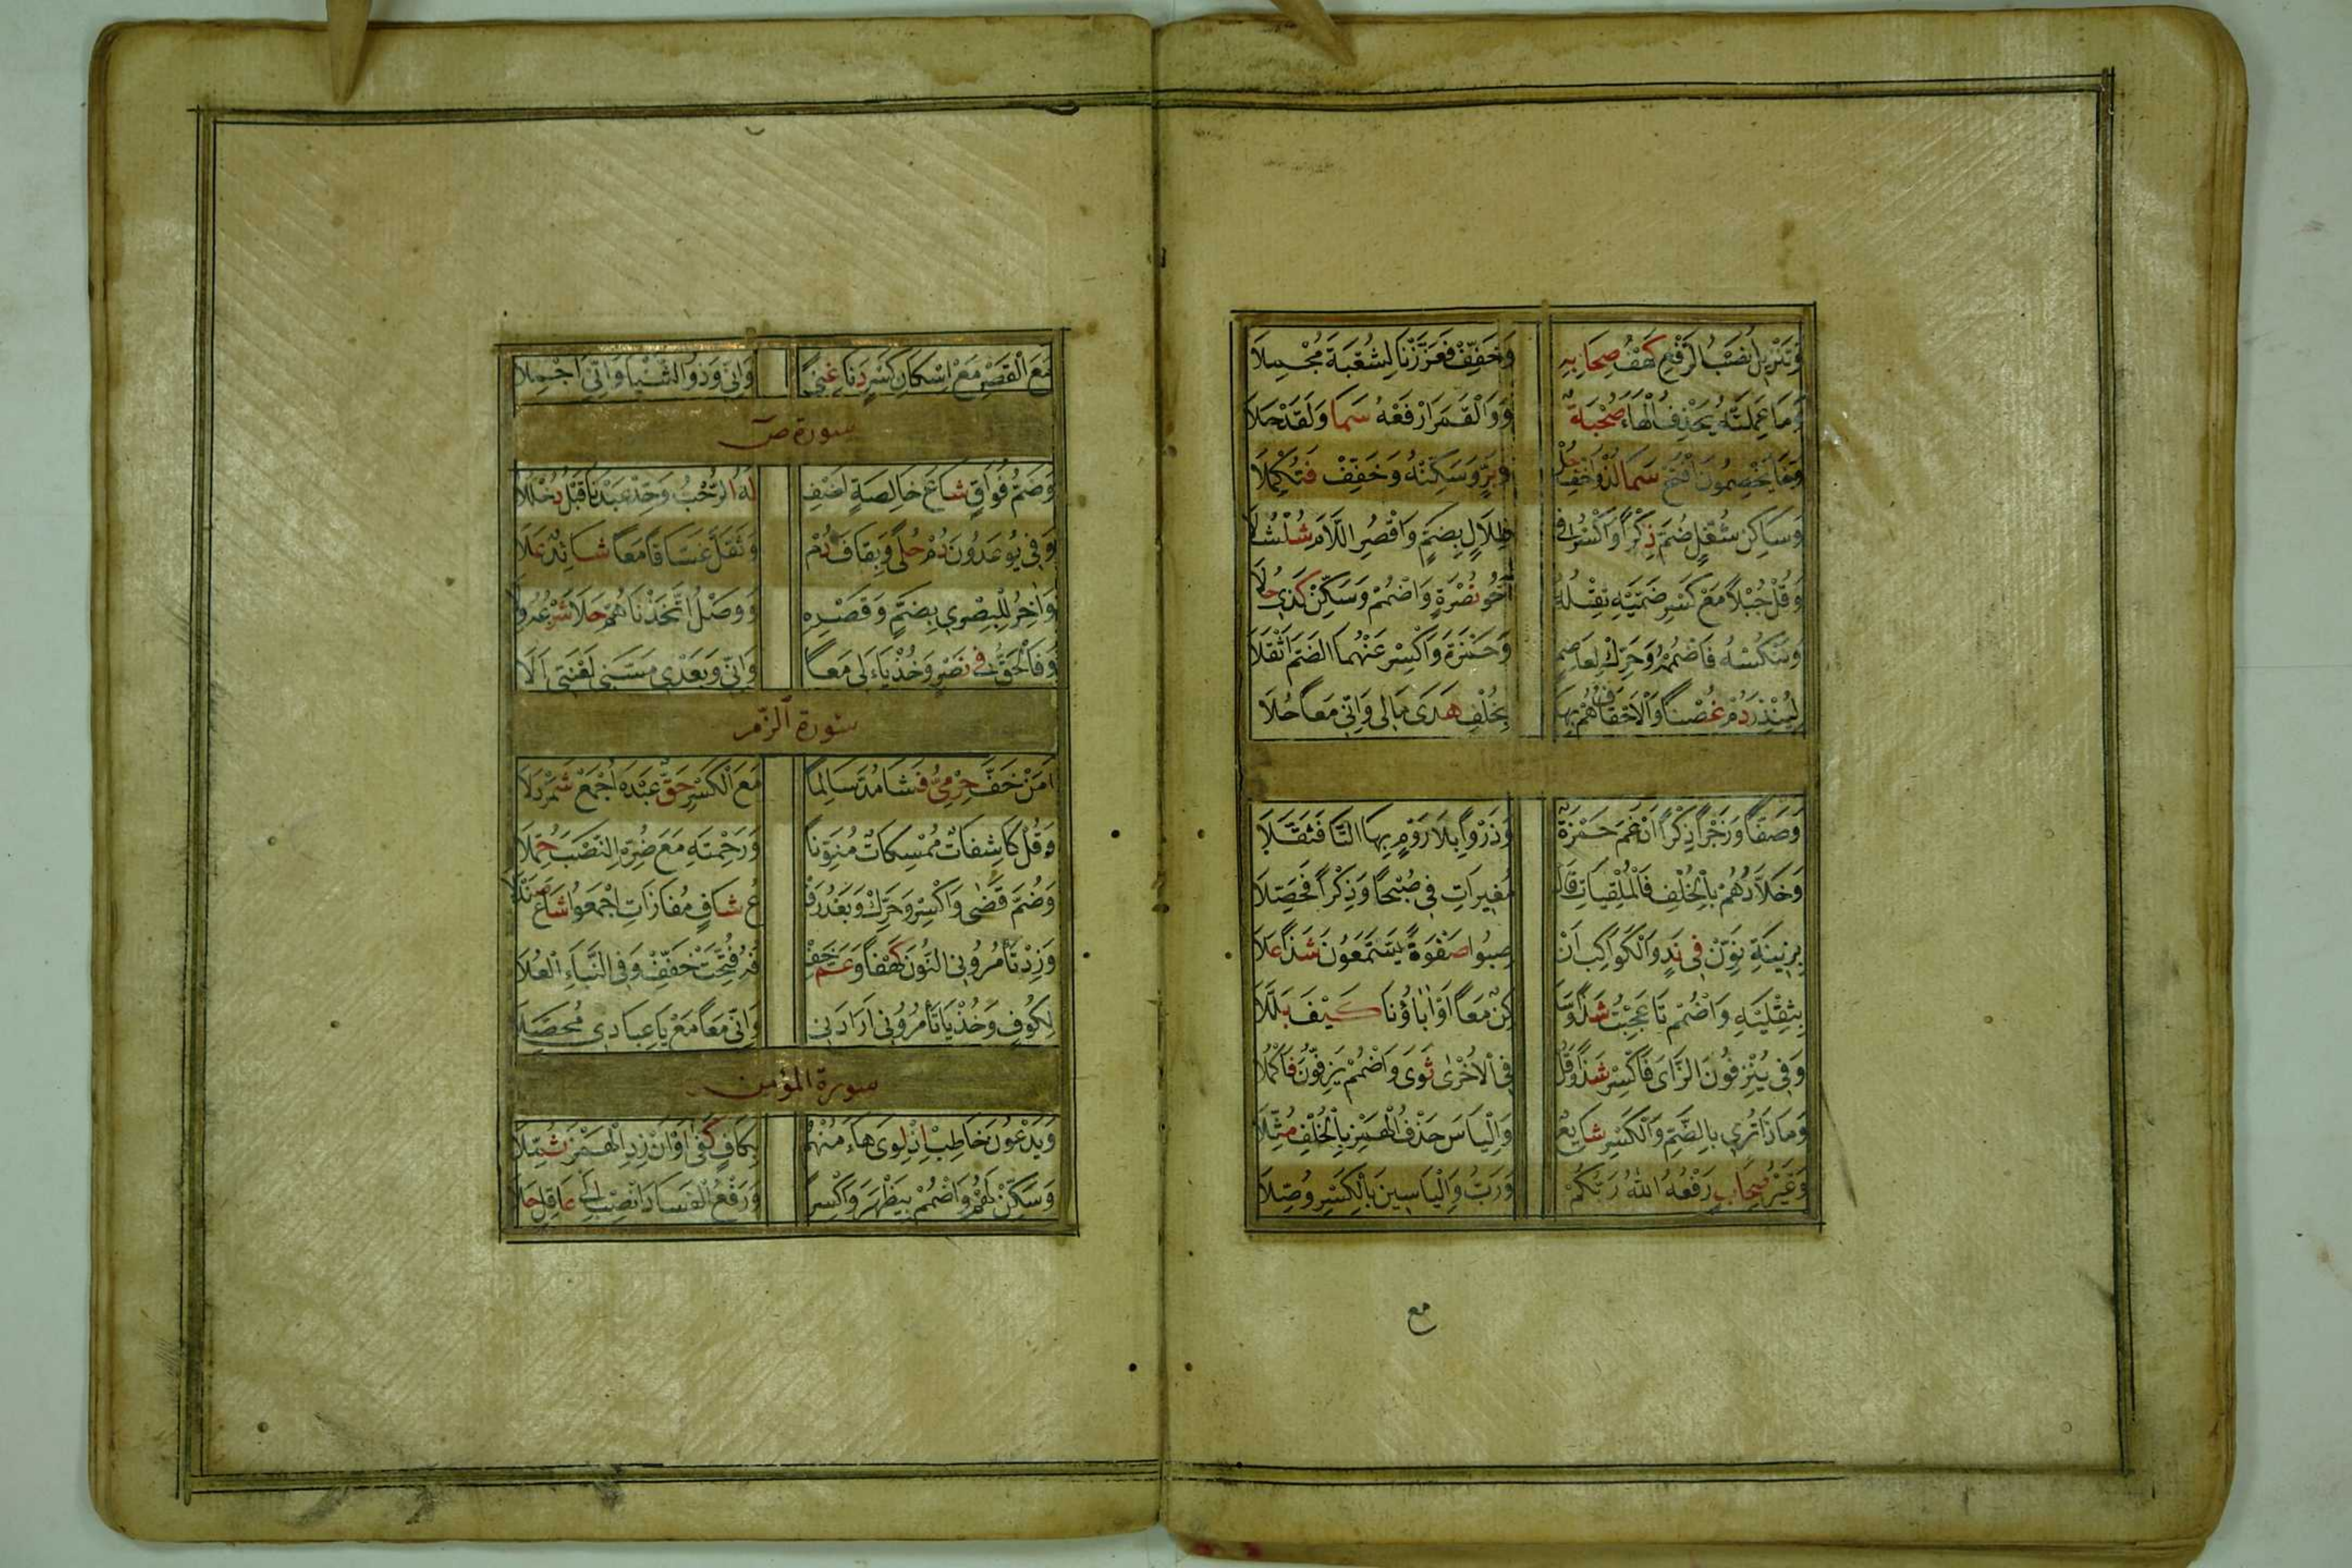 وَتَنْزِيلُ نَصْبُ الرَّفْعِ كَهْفُ صِحَابِهِ وَخَفِّفْ فَعَزَّزْنَا لِشُعْبَةَ مُجْمِلَا
وَمَا عَمِلَتْهُ يَحْذِفُ الْهَاءَ صُحْبَةٌ وَوَالْقَمَرَ ارْفَعْهُ سَمَا وَلَقَدْ حَلَا
وَخَا يَخْصِمُونَ افْتَحْ سَمَا لُذْ وَأَخْفِ حُلْ وَبَرٍّ وَسَكِّنْهُ وَخَفِّفْ فَتُكْمِلَا
وَسَاكِنَ شُغْلٍ ضُمَّ ذِكْرًا وَاكْسُرْ فِي ظِلَالٍ بِضَمٍّ وَاقْصُرِ اللَّامَ شُلْشُلَا
وَقُلْ جُبُلًا مَعْ كَسْرِ ضَمَّيْهِ ثِقْلُهُ أَخُو نُصْرَةٍ وَاضْمُمْ وَسَكِّنْ كَذِي حُلَا
وَنَنْكُسْهُ فَاضْمُمْهُ وَحَرِّكْ لِعَاصِمٍ وَحَمْزَةَ وَاكْسِرْ عَنْهُمَا الضَّمَّ أَثْقَلَا
لِيُنْذِرَ دُمْ غُصْنًا وَالْأَحْقَافُ هُمْ بِهَا بِخُلْفٍ هَدَى مَالِي وَإِنِّي مَعًا حُلَا
وَصَفًّا وَزَجْرًا ذِكْرًا ادْغَمَ حَمْزَةٌ وَذَرْوًا بِلَا رَوْمٍ بِهَا التَّا فَثَقَّلَا
وَخَلَّادُهُمْ بِالْخُلْفِ فَالْمُلْقِيَاتِ فَالْ مُغِيرَاتِ فِي صُبْحًا وَذِكْرًا فَحَصِّلَا
بِزِينَةِ نَوِّنْ فِي نَدٍ وَالْكَوَاكِبِ انْ صِبُوا صَفْوَةً يَسَّمَّعُونَ شَذًا عَلَا
بِثِقْلَيْهِ وَاضْمُمْ تَا عَجِبْتَ شَذًا وَسَا كِنٌ مَعًا أَوْ آبَاؤُنَا كَيْفَ بَلَّلَا
وَفِي يُنْزَفُونَ الزَّايَ فَاكْسِرْ شَذًا وَقُلْ فِي الْأُخْرَى ثَوَى وَاضْمُمْ يَزِفُّونَ فَاكْمُلَا
وَمَاذَا تُرِي بِالضَّمِّ وَالْكَسْرِ شَايِعٌ وَإِلْيَاسَ حَذْفُ الْهَمْزِ بِالْخُلْفِ مُثِّلَا
وَغَيْرُ صِحَابٍ رَفْعُهُ اللهُ رَبُّكُمْ وَرَبُّ وَإِلْيَاسِينَ بِالْكَسْرِ وُصِّلَا
مع
مَعَ الْقَصْرِ مَعْ إِسْكَانِ كَسْرٍ دَنَا غِنًى وَإِنِّي وَذُو الثُّنْيَا وَأَنِّي أُجْمِلَا
سورة ص
وَضَمُّ فَوَاقٍ شَاعَ خَالِصَةٍ أَضِفْ لَهُ الرُّحْبُ وَحِّدْ عَبْدَنَا قَبْلُ دُخْلُلَا
وَفِي يُوعَدُونَ دُمْ حُلًى وَبِقَافَ دُمْ وَثَقَّلَ غَسَّاقًا مَعًا شَائِدٌ عَلَا
وَآخَرُ لِلْبَصْرِي بِضَمٍّ وَقَصْرِهِ وَوَصْلُ اتَّخَذْنَاهُمْ حَلَا شَرْعُهُ وِلَا
وَفَالْحَقُّ فِي نَصْرٍ وَخُذْ يَاءَ لِي مَعًا وَإِنِّي وَبَعْدِي مَسَّنِي لَعْنَتِي إِلَى
سورة الزمر
أَمَنْ خَفَّ حِرْمِيٌّ فَشَا مُدَّ سَالِمًا مَعَ الْكَسْرِ حَقٌّ عَبْدَهُ اجْمَعْ شَمَرْدَلَا
وَقُلْ كَاشِفَاتٌ مُمْسِكَاتٌ مُنَوِّنًا وَرَحْمَتِهِ مَعَ ضُرِّهِ النَّصْبَ حُمِّلَا
وَضُمَّ قَضَى وَاكْسِرْ وَحَرِّكْ وَبَعْدُ رَفْ عُ شَافٍ مَفَازَاتِ اجْمَعُوا شَاعَ صَنْدَلَا
وَزِدْ تَأْمُرُونِي النُّونَ كَهْفًا وَعَمَّ خِفْ فُهُ فُتِّحَتْ خَفِّفْ وَفِي النَّبَإِ الْعُلَا
لِكُوفٍ وَخُذْ يَا تَأْمُرُونِي أَرَادَنِي وَإِنِّي مَعًا مَعْ يَا عِبَادِي مُحَصِّلَا
سورة المؤمن
وَيَدْعُونَ خَاطِبْ إِذْ لَوَى هَاءُ مِنْهُمُ بِكَافٍ كَفَى أَوْ أَنْ زِدِ الْهَمْزَ ثُمَّلَا
وَسَكِّنْ لَهُمْ وَاضْمُمْ بِيَظْهَرَ وَاكْسِرَا وَرَفْعُ الْفَسَادَ انْصِبْ إِلَى عَاقِلٍ حَلَا